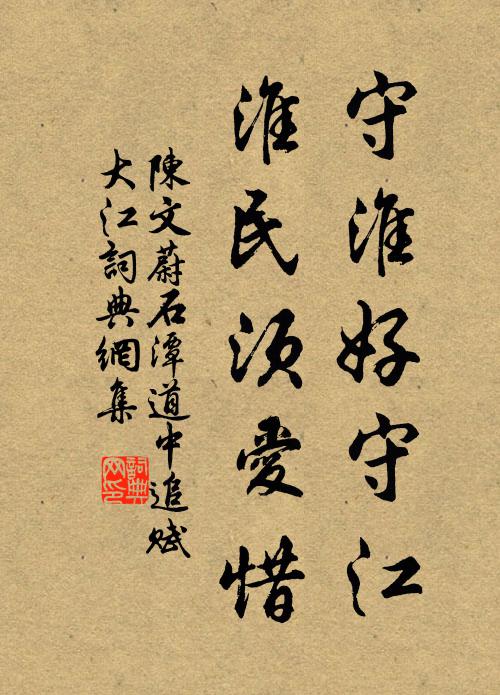 守淮好守江
淮民須愛惜
陳文蔚石潭道中追賦
大江詞典網集
詞典网印